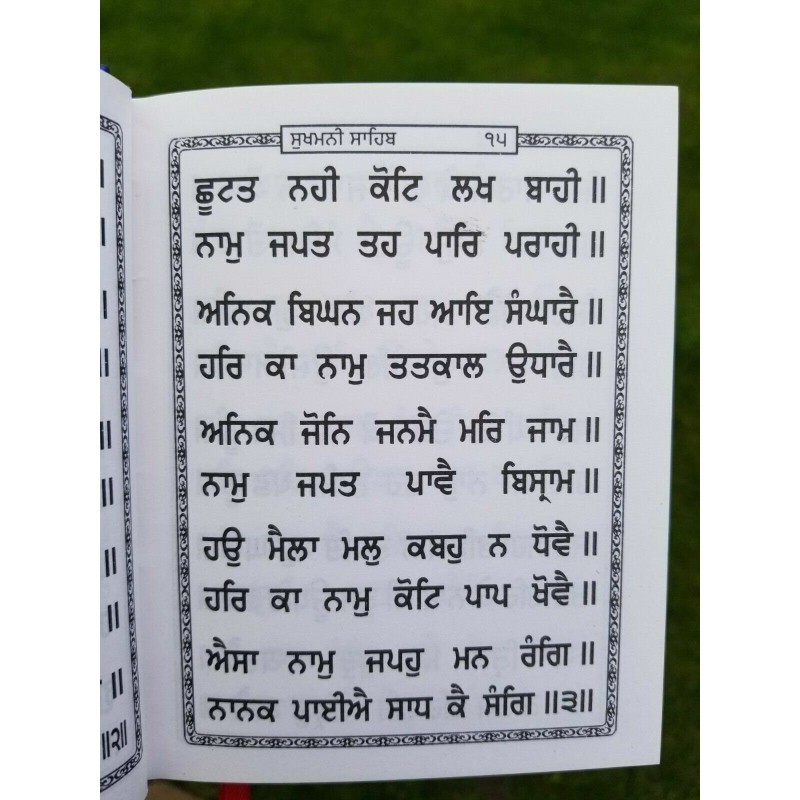 ਸੁਖਮਨੀ ਸਾਹਿਬ ੧੫
ਛੂਟਤ ਨਹੀ ਕੋਟਿ ਲਖ ਬਾਹੀ ॥
ਨਾਮੁ ਜਪਤ ਤਹ ਪਾਰਿ ਪਰਾਹੀ ॥
ਅਨਿਕ ਬਿਘਨ ਜਹ ਆਇ ਸੰਘਾਰੈ ॥
ਹਰਿ ਕਾ ਨਾਮੁ ਤਤਕਾਲ ਉਧਾਰੈ ॥
ਅਨਿਕ ਜੋਨਿ ਜਨਮੈ ਮਰਿ ਜਾਮ ॥
ਨਾਮੁ ਜਪਤ ਪਾਵੈ ਬਿਸ੍ਰਾਮ ॥
ਹਉ ਮੈਲਾ ਮਲੁ ਕਬਹੁ ਨ ਧੋਵੈ ॥
ਹਰਿ ਕਾ ਨਾਮੁ ਕੋਟਿ ਪਾਪ ਖੋਵੈ ॥
ਐਸਾ ਨਾਮੁ ਜਪਹੁ ਮਨ ਰੰਗਿ ॥
ਨਾਨਕ ਪਾਈਐ ਸਾਧ ਕੈ ਸੰਗਿ ॥੩॥
॥੨॥